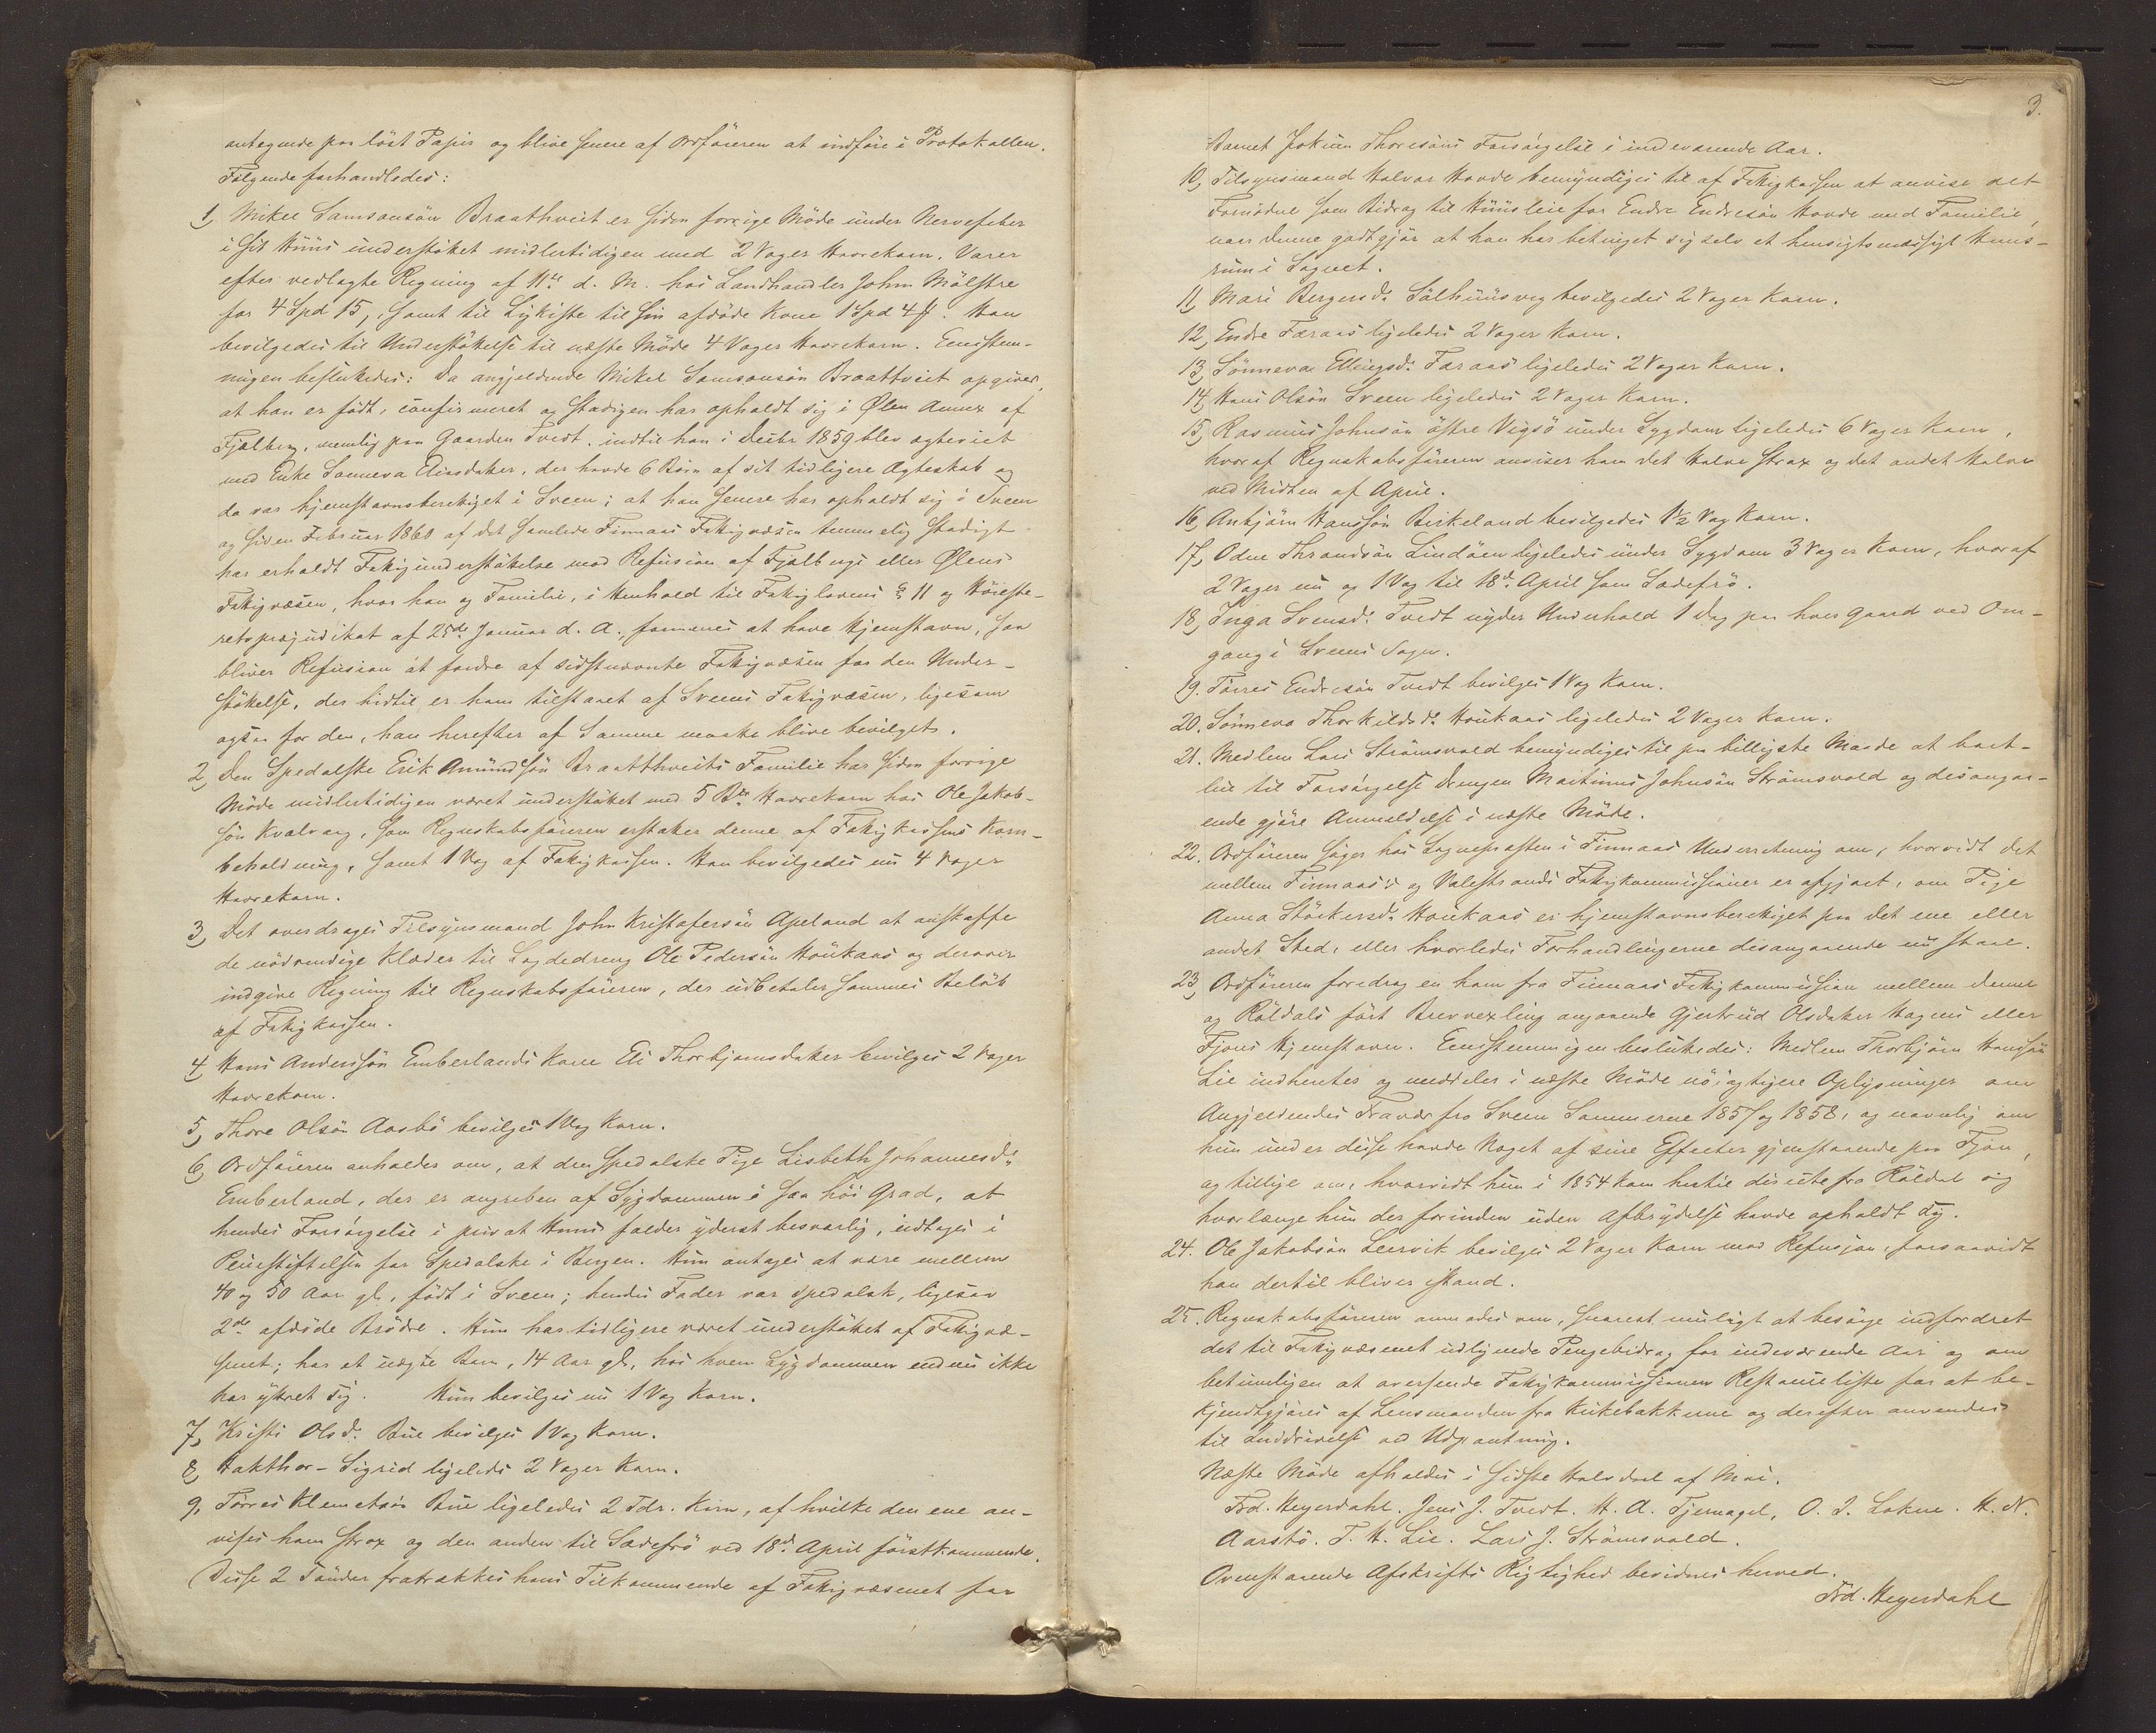 antegnede paa löst Papir og blive senere af Ordföreren at indföre i Protokollen.
Fölgende forhandledes:
1, Mikel Samsonsön Braathveit er siden forrige Möde under Nervefeber
i sit Huus understöttet midlertidigen med 2 Vager Havrekorn, Varer
efter vedlagte Regning af 11te d. M. hos Landhandler John Mölstre
for 4 Spd 15, samt til Ligkiste til sin afdöde Kone 1 Spd 4 ß. Han
bevilgedes til Understöttelse til næste Möde 4 Vager Havrekorn. Eenstem-
migen besluttedes: Da angjeldende Mikel Samsonsön Braattveit opgiver,
at han er födt, confirmeret og stadigen har opholdt sig i Ølen Annex af
Fjælberg, nemlig paa Gaarden Tvedt, indtil han i Decbr 1859 blev ægteviet
med Enke Sønneva Eliasdatter, der havde 6 Börn af sit tidligere Ægteskab og
da var hjemstavnsberettiget i Sveen; at han senere har opholdt sig i Sveen
og siden Februar 1860 af det samlede Finnaas Fattigvæsen temmelig stadigt
har erholdt Fattigunderstöttelse mod Refusion af Fjelbergs eller Ølens
Fattigvæsen, hvor han og Familie, i Henhold til Fattiglovens § 11 og Höieste-
retspræjudikat af 25de Januar d. A., formenes at have Hjemstavn, saa
bliver Refusion at fordre af sidstnævnte Fattigvæsen for den Under-
støttelse, der hidtil er ham tilstaaet af Sveens Fattigvæsen, ligesom
ogsaa for den, han herefter af Samme maatte blive bevilget.
2, Den Spedalske Erik Amundsön Braatthveits Familie har siden forrige
Möde midlertidigen været understöttet med 5 Havrekorn hos Ole Jakob-
sön Kvalvaag, som Regnskabsföreren erstatter denne af Fattigkassens Korn-
beholdning, samt 1 Vog af Fattigkassen. Han bevilgedes nu 4 Vager
Havrekorn.
3, Det overdrages Tilsynsmand John Kristofersön Apeland at anskaffe
de nödvendige Klæder til Lægdedreng Ole Pedersön Houkaas og derover
indgive Regning til Regnskabsföreren, der udbetaler sammes Belöb
af Fattigkassen.
4, Hans Anderssön Emberlands Kone Eli Thorbjørnsdatter bevilges 2 Vager
Havrekorn.
5, Thore Olsön Aasbö bevilges 1 Vog Korn.
6, Ordföreren anholder om, at den spedalske Pige Lisbeth Johannesdr
Emberland, der er angreben af Sygdommen i saa höi Grad, at
hendes Forsörgelse i privat Huus falder yderst besværlig, indtages i
Pleiestiftelsen for Spedalske i Bergen. Hun antages at være mellem
40 og 50 Aar gl., födt i Sveen; hendes Fader var spedalsk, ligesaa
2de afdöde Brödre. Hun har tidligere været understöttet af Fattigvæ-
senet; har et uægte Barn, 14 Aar gl., hos hvem Sygdommen endnu ikke
har yttret sig. Hun bevilges nu 1 Vog Korn.
7, Kristi Olsd. Bue bevilges 1 Vog Korn.
8, Hakthor-Sigrid ligeledes 2 Vager Korn.
9, Törres Klemetsön Bue ligeledes 2 Tdr. Korn, af hvilke den ene an-
vises ham strax og den anden til Sædefrö ved 18de April förstkommende.
Disse 2 Tönder fratrækkes hans Tilkommende af Fattigvæsenet for
3.
Barnet Jokum Thoresöns Forsörgelse i indeværende Aar.
10, Tilsynsmand Halvor Hovde bemyndiges til af Fattigkassen at anvise det
Fornödne som Bidrag til Huusleie for Endre Endresön Hovde med Familie,
naar denne godtgjör at han har betinget sig selv et hensigtsmæssigt Huus-
rum i Sognet.
11, Mari Bergersd. Sölhuusveg bevilgedes 2 Vager Korn.
12, Endre Færaas ligeledes 2 Vager Korn.
13, Sönneva Ellingsd. Færaas ligeledes 2 Vager Korn.
14, Hans Olsön Sveen ligeledes 2 Vager Korn.
15, Rasmus Johnsön östre Vigsö under Sygdom ligeledes 6 Vager Korn,
hvoraf Regnskabsföreren anviser ham det Halve strax og det andet Halve
ved Midten af April.
16, Anbjörn Hanssön Birkeland bevilgedes 1½ Vog Korn.
17, Odne Throndsön Lindöen ligeledes under Sygdom 3 Vager Korn, hvoraf
2 Vager nu og 1 Vog til 18de April som Sædefrö.
18, Inga Svensd. Tvedt nyder Underhold 1 Dag paa hver Gaard ved Om-
gang i Sveens Sogn.
19. Törres Endresön Tvedt bevilges 1 Vog Korn.
20. Sönneva Thorkildsd. Houkaas ligeledes 2 Vager Korn.
21. Medlem Lars Strömsvold bemyndiges til paa billigste Maade at bort-
leie til Forsörgelse Drengen Martinus Johnsön Strömsvold og desangaa-
ende gjöre Anmeldelse i næste Möde.
22. Ordföreren söger hos Sognepræsten i Finnaas Underretning om, hvorvidt det
mellem Finnaas's og Valestrands Fattigkommissioner er afgjort, om Pige
Anna Störkersd. Houkaas er hjemstavnsberettiget paa det ene eller
andet Sted, eller hvorledes Forhandlingerne desangaaende nu staae.
23, Ordföreren foredrog en ham fra Finnaas Fattigkommission mellem denne
og Röldals fört Brevvexling angaaende Gjertrud Olsdatter Hagens eller
Fjons Hjemstavn. Eenstemmigen besluttedes: Medlem Thorbjörn Hanssön
Lie indhenter og meddeler i næste Möde nöiagtigere Oplysninger om
Angjeldendes Fravær fra Sveen Sommerne 1857 og 1858, og navnlig om
hun under disse havde Noget af sine Effecter gjenstaaende paa Fjon,
og tillige om, hvorvidt hun i 1854 kom hertil directe fra Röldal og
hvorlænge hun der forinden uden Afbrydelse havde opholdt sig.
24. Ole Jakobsön Leervik bevilges 2 Vager Korn mod Refusjon, forsaavidt
han dertil bliver istand.
25. Regnskabsföreren anmodes om, snarest muligt at besörge indfordret
det til Fattigvæsenet udlignede Pengebidrag for indeværende Aar og om
betimeligen at oversende Fattigkommissionen Restanceliste for at be-
kjendtgjöres af Lensmanden fra Kirkebakkerne og derefter anvendes
til Inddrivelse ved Udpantning.
Næste Möde afholdes i sidste Halvdeel af Mai.
Frd. Heyerdahl. Jens J. Tvedt. H. A. Tjernagel, O. J. Lokne. H. N.
Aarstö. T. H. Lie. Lars J. Strömsvold.
Ovenstaaende Afskrifts Rigtighed bevidnes herved.
Frd. Heyerdahl